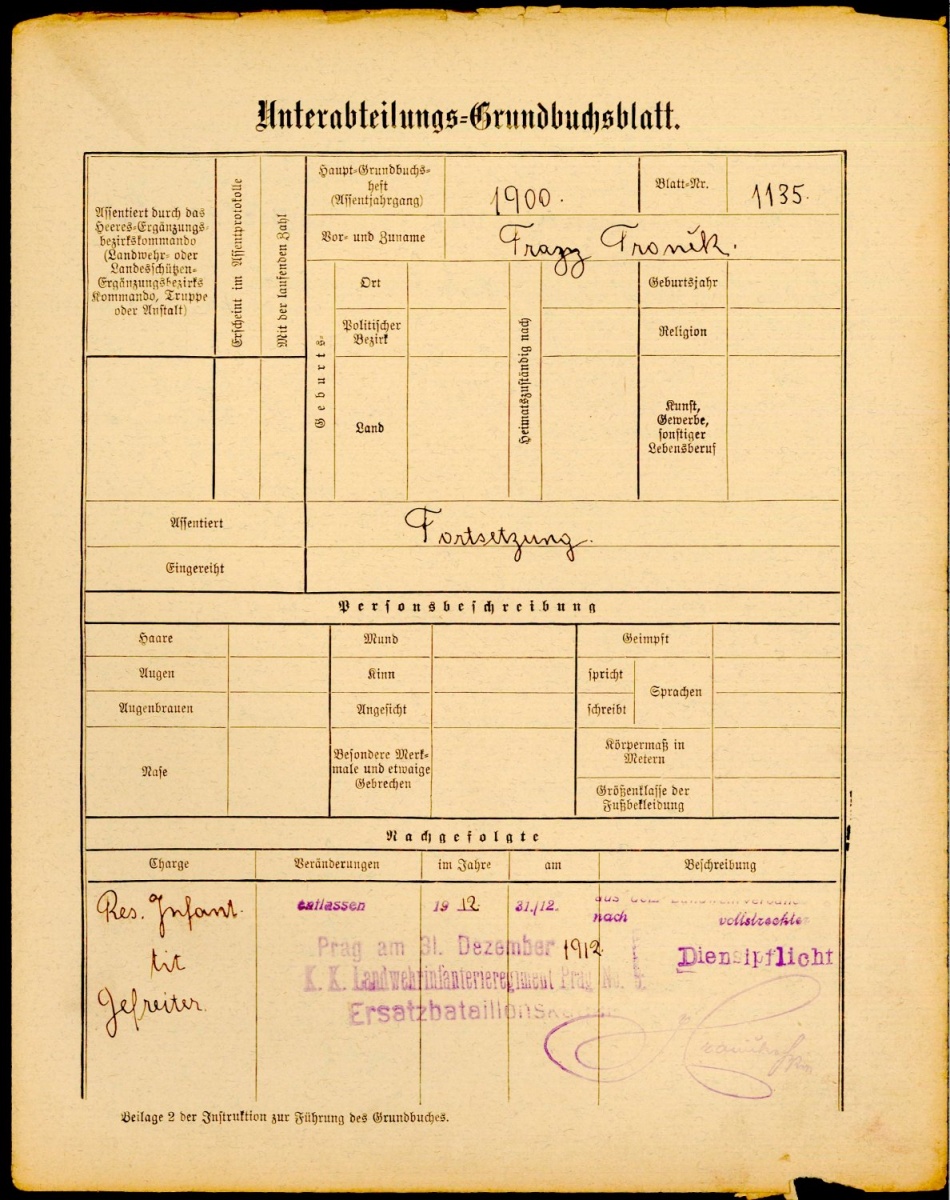 Unterabteilungs-Grundbuchsblatt.
Assentiert durch das
Heeres-Ergänzungs-
bezirkskommando
(Landwehr- oder
Landesschützen-
Ergänzungsbezirks
Kommando, Truppe
oder Anstalt)
Erscheint im Assentprotokolle
Mit der laufenden Zahl
Haupt-Grundbuchs-
heft
(Assentjahrgang)
1900.
Blatt-Nr.
1135.
Vor- und Zuname
Franz Tronik.
Geburts-
Ort
Politischer
Bezirk
Land
Heimatszuständig nach
Geburtsjahr
Religion
Kunst,
Gewerbe,
sonstiger
Lebensberuf
Assentiert
Fortsetzung.
Eingereiht
Personsbeschreibung
Haare
Mund
Geimpft
Augen
Kinn
spricht
Sprachen
Augenbrauen
Angesicht
schreibt
Nase
Besondere Merk-
male und etwaige
Gebrechen
Körpermaß in
Metern
Größenklasse der
Fußbekleidung
Nachgefolgte
Charge Veränderungen im Jahre am Beschreibung
Res. Infant. entlassen 19 12. 31./12. aus dem Landwehrverbande
nach vollstreckter
tit
Prag am 31. Dezember 1912.
Dienstpflicht
K. K. Landwehrinfanterieregiment Prag No.
Gefreiter.
Beilage 2 der Instruktion zur Führung des Grundbuches.